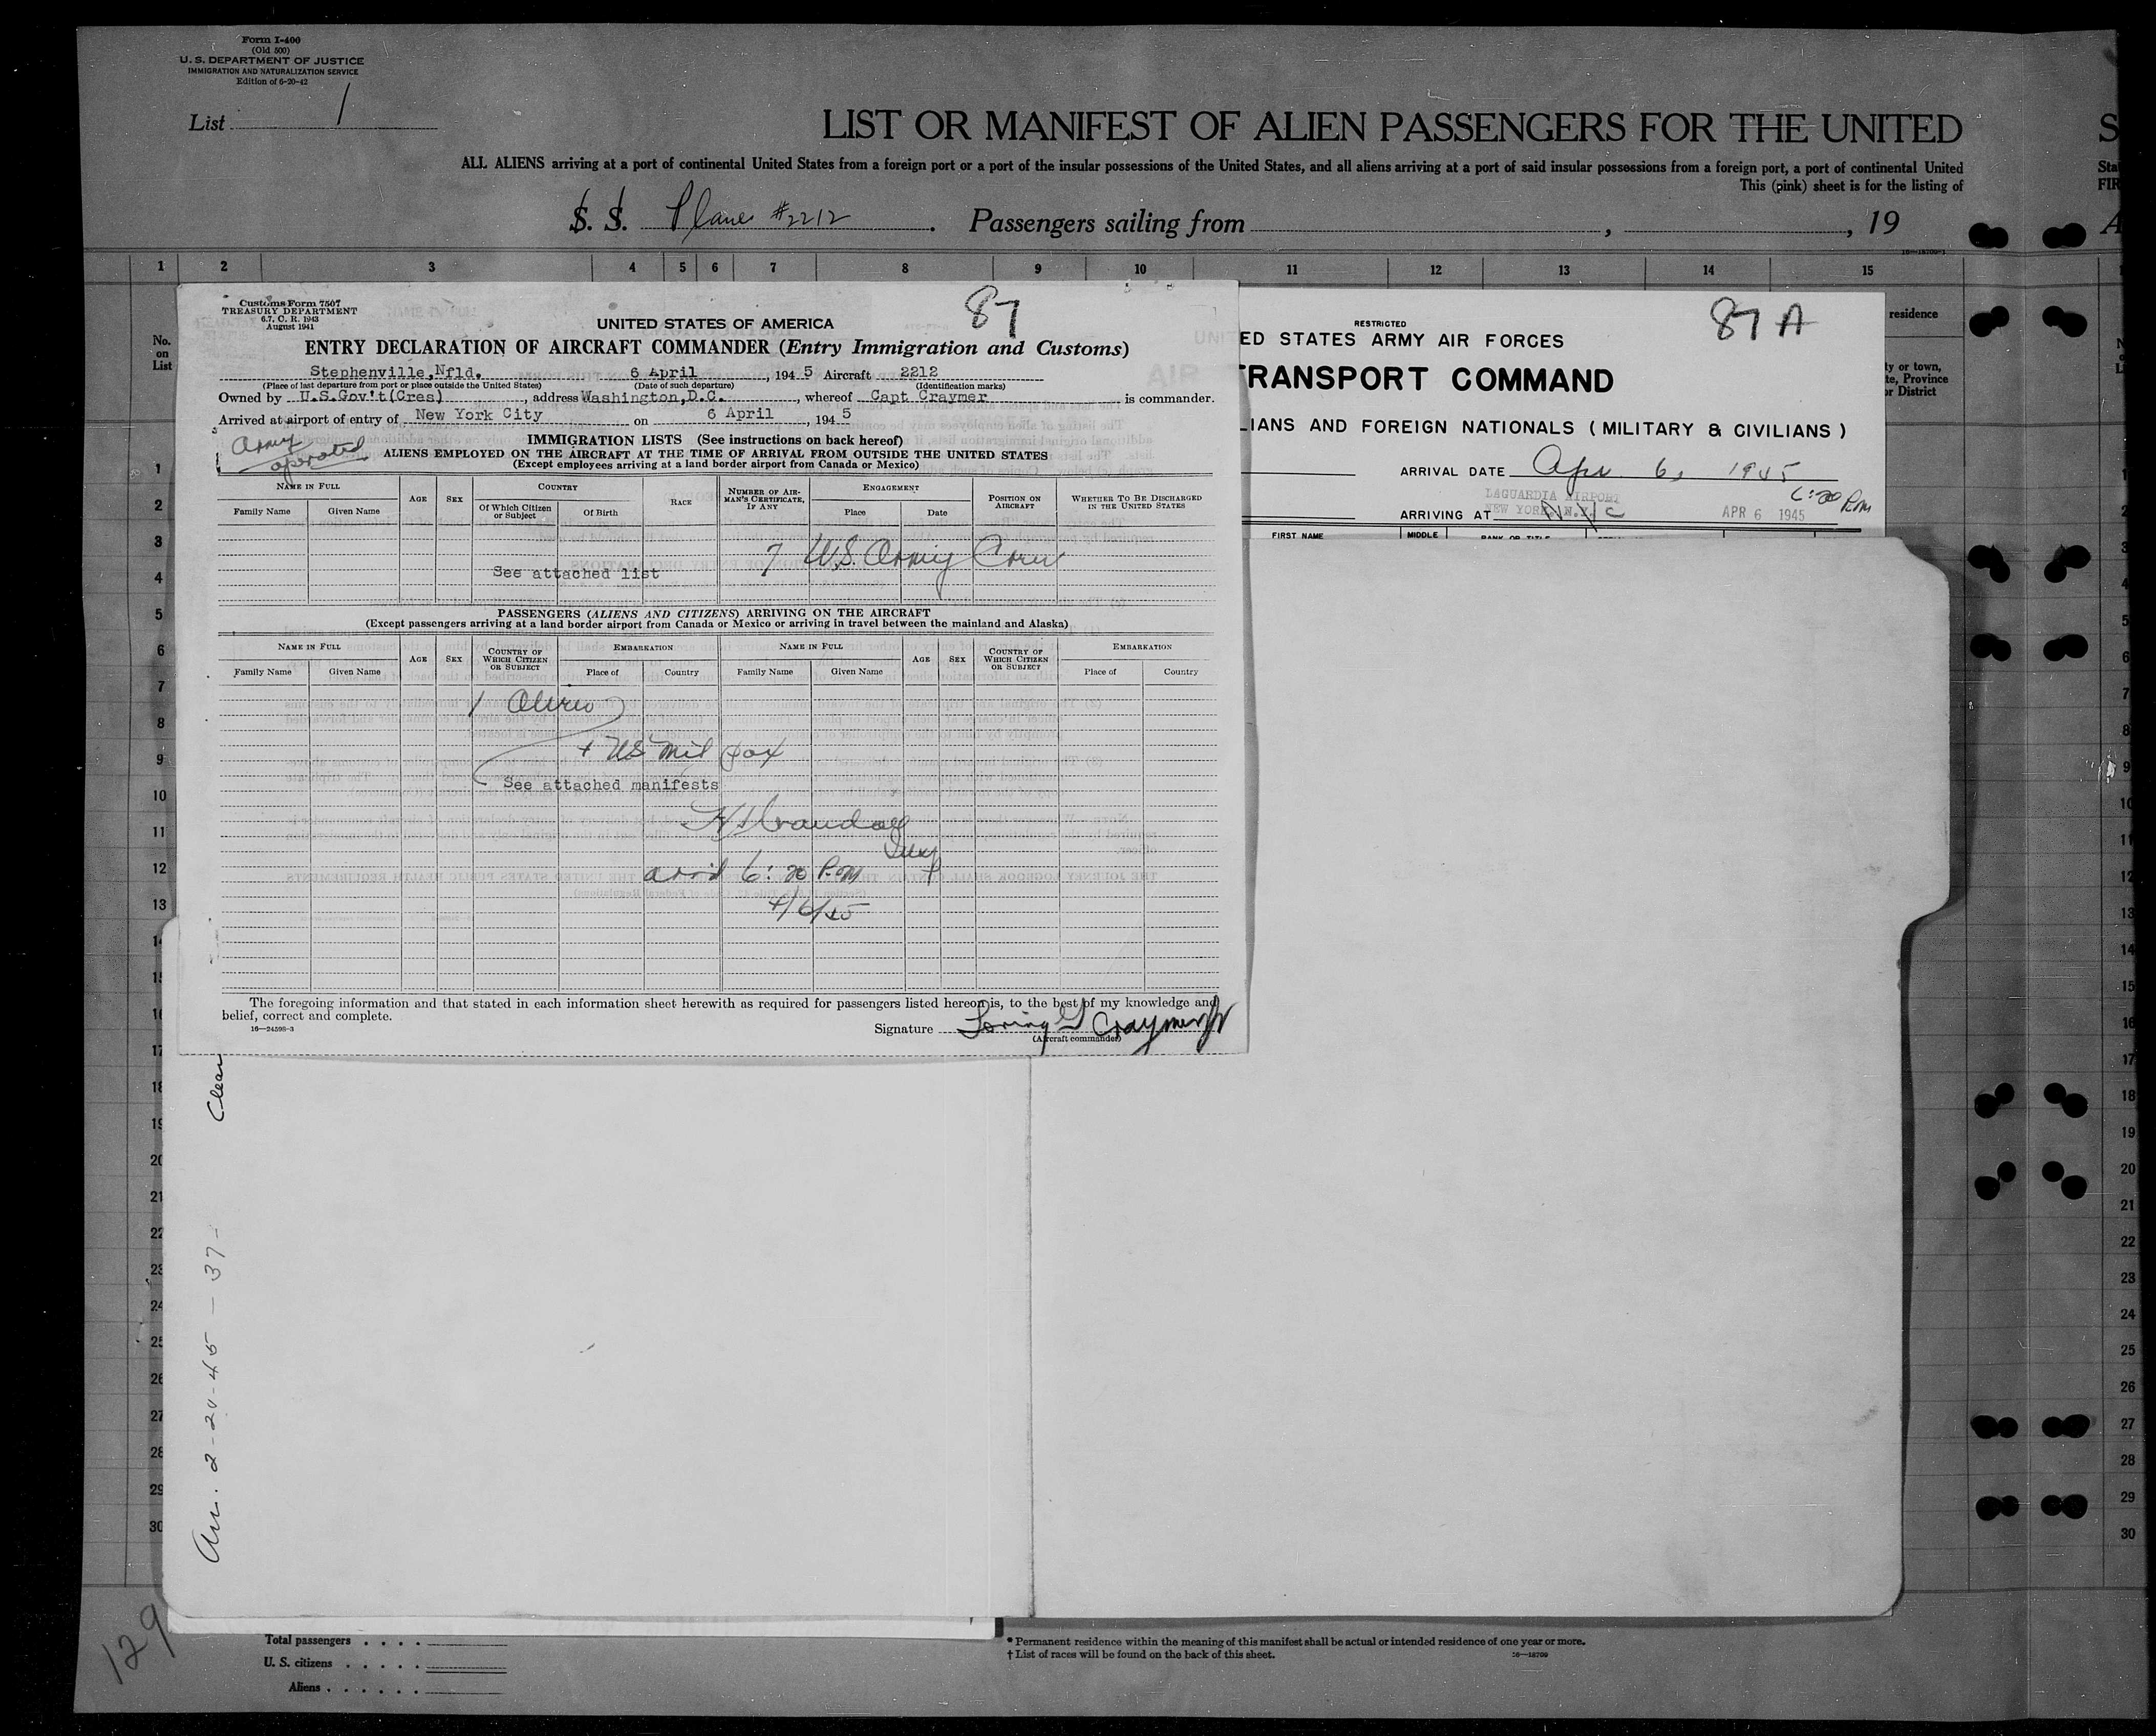 Form I-400
(Old 500)
U. S. DEPARTMENT OF JUSTICE
IMMIGRATION AND NATURALIZATION SERVICE
Edition of 6-20-42
List 1
LIST OR MANIFEST OF ALIEN PASSENGERS FOR THE UNITED
ALL ALIENS arriving at a port of continental United States from a foreign port or a port of the insular possessions of the United States, and all aliens arriving at a port of said insular possessions from a foreign port, a port of continental United
This (pink) sheet is for the listing of
S. S. Plane #2212. Passengers sailing from , , 19
16—18709-1
1 2 3 4 5 6 7 8 9 10 11 12 13 14 15
No. on List
residence
ty or town,
te, Province
or District
Customs Form 7507
TREASURY DEPARTMENT
6.7, C. R. 1943
August 1941
87
UNITED STATES OF AMERICA
ENTRY DECLARATION OF AIRCRAFT COMMANDER (Entry Immigration and Customs)
Stephenville,Nfld. 6 April, 1945 Aircraft 2212
(Place of last departure from port or place outside the United States) (Date of such departure) (Identification marks)
Owned by U.S.Gov't(Cres), address Washington,D.C., whereof Capt Craymer is commander.
Arrived at airport of entry of New York City on 6 April, 1945
Army operated
IMMIGRATION LISTS (See instructions on back hereof)
ALIENS EMPLOYED ON THE AIRCRAFT AT THE TIME OF ARRIVAL FROM OUTSIDE THE UNITED STATES
(Except employees arriving at a land border airport from Canada or Mexico)
NAME IN FULL AGE SEX COUNTRY RACE NUMBER OF AIRMAN'S CERTIFICATE, IF ANY ENGAGEMENT POSITION ON AIRCRAFT WHETHER TO BE DISCHARGED IN THE UNITED STATES
Family Name Given Name Of Which Citizen or Subject Of Birth Place Date
7 U.S. Army Crew
See attached list
PASSENGERS (ALIENS AND CITIZENS) ARRIVING ON THE AIRCRAFT
(Except passengers arriving at a land border airport from Canada or Mexico or arriving in travel between the mainland and Alaska)
NAME IN FULL AGE SEX COUNTRY OF WHICH CITIZEN OR SUBJECT EMBARKATION NAME IN FULL AGE SEX COUNTRY OF WHICH CITIZEN OR SUBJECT EMBARKATION
Family Name Given Name Place of Country Family Name Given Name Place of Country
1 Alien
+ US mil pax
See attached manifests
arrd 6:20 P.M
4/6/45
The foregoing information and that stated in each information sheet herewith as required for passengers listed hereon is, to the best of my knowledge and
belief, correct and complete.
16—24598-3
Signature Loring G Craymer Jr
(Aircraft commander)
RESTRICTED
87 A
ED STATES ARMY AIR FORCES
TRANSPORT COMMAND
LIANS AND FOREIGN NATIONALS ( MILITARY & CIVILIANS )
ARRIVAL DATE Apr 6, 1945
6:20 P.M
LAGUARDIA AIRPORT
ARRIVING AT NEW YORK, N.Y. APR 6 1945
N.Y.C
FIRST NAME MIDDLE RANK OR TITLE
Clear
2-20-45 — 37-
129
Total passengers
U. S. citizens
Aliens
* Permanent residence within the meaning of this manifest shall be actual or intended residence of one year or more.
† List of races will be found on the back of this sheet.
16—18709